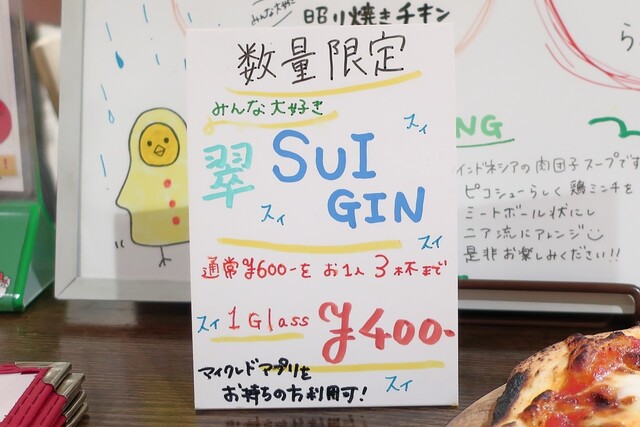 みんな大好き
照り焼きチキン
数量限定
みんな大好き
スィ
翠 SUI
GIN
スィ
スィ
通常¥600-を お1人 3杯まで
スィ 1 Glass ¥400-
マイクレドアプリを
お持ちの方利用可!
スィ
ら
NG
インドネシアの肉団子スープです
ピコシューらしく 鶏ミンチを
ミートボール状にし
ニア流にアレンジ
是非お楽しみください!!